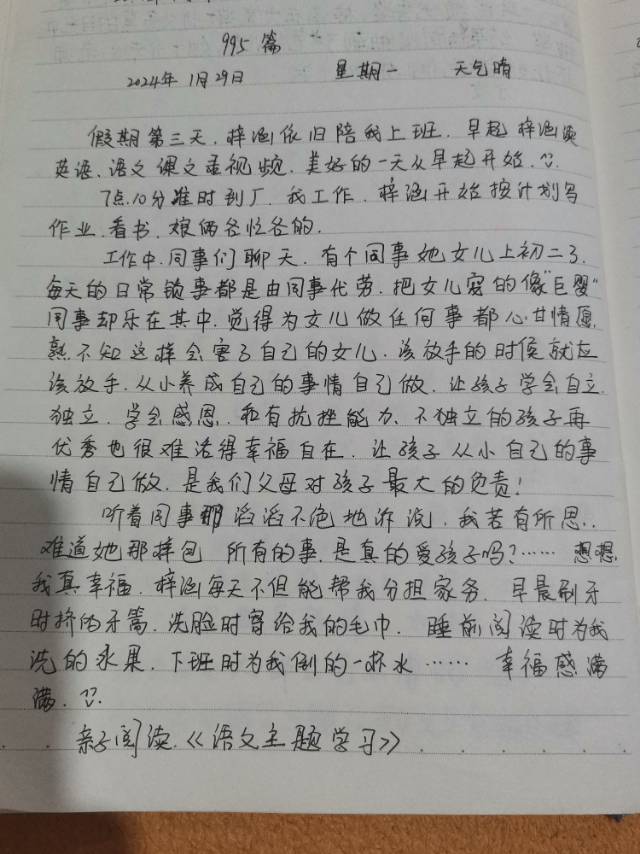 995篇
2024年1月29日 星期一 天气晴
假期第三天,梓涵依旧陪我上班.早起梓涵读
英语、语文课文看视频,美好的一天从早起开始.
7点10分准时到厂,我工作,梓涵开始按计划写
作业,看书,娘俩各忙各的.
工作中,同事们聊天,有个同事她女儿上初二了,
每天的日常锁事都是由同事代劳,把女儿宠的像"巨婴"
同事却乐在其中,觉得为女儿做任何事都心甘情愿,
熟不知这样会害了自己的女儿,该放手的时侯就应
该放手,从小养成自己的事情自己做,让孩子学会自立,
独立,学会感恩,和有抗挫能力,不独立的孩子再
优秀也很难活得幸福自在,让孩子从小自己的事
情自己做,是我们父母对孩子最大的负责!
听着同事那滔滔不绝地诉说,我若有所思..
难道她那样包 所有的事,是真的爱孩子吗?…… 想想
我真幸福,梓涵每天不但能帮我分担家务,早晨刷牙
时挤的牙膏,洗脸时寄给我的毛巾,睡前阅读时为我
洗的水果,下班时为我倒的一杯水…… 幸福感满
满.
亲子阅读.《语文主题学习》